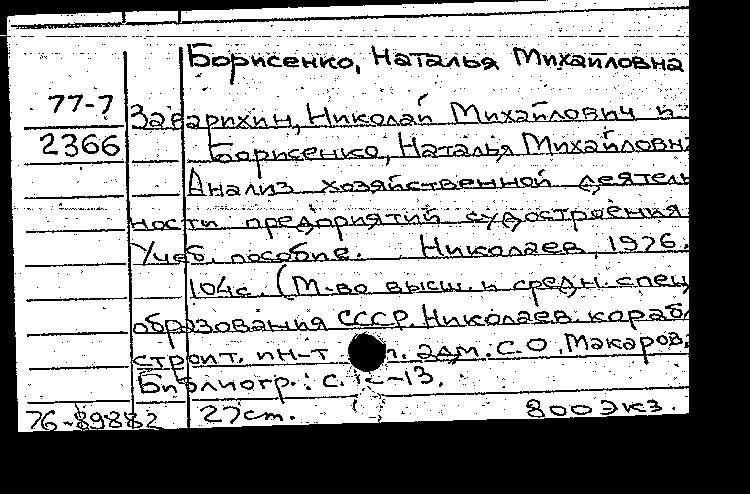 Борисенко, Наталья Михайловна
77-7 Заварихин, Николай Михайлович и
2366 Борисенко, Наталья Михайловн
Анализ хозяйственной деятель
ности предприятий судостроения
Учеб. пособие. Николаев, 1976.
104с. (М-во высш. и средн. спец
образования СССР. Николаев. корабл
строит. ин-т адм. С.О. Макаров
Библиогр.: с. -13.
76-89882 27см. 800 экз.